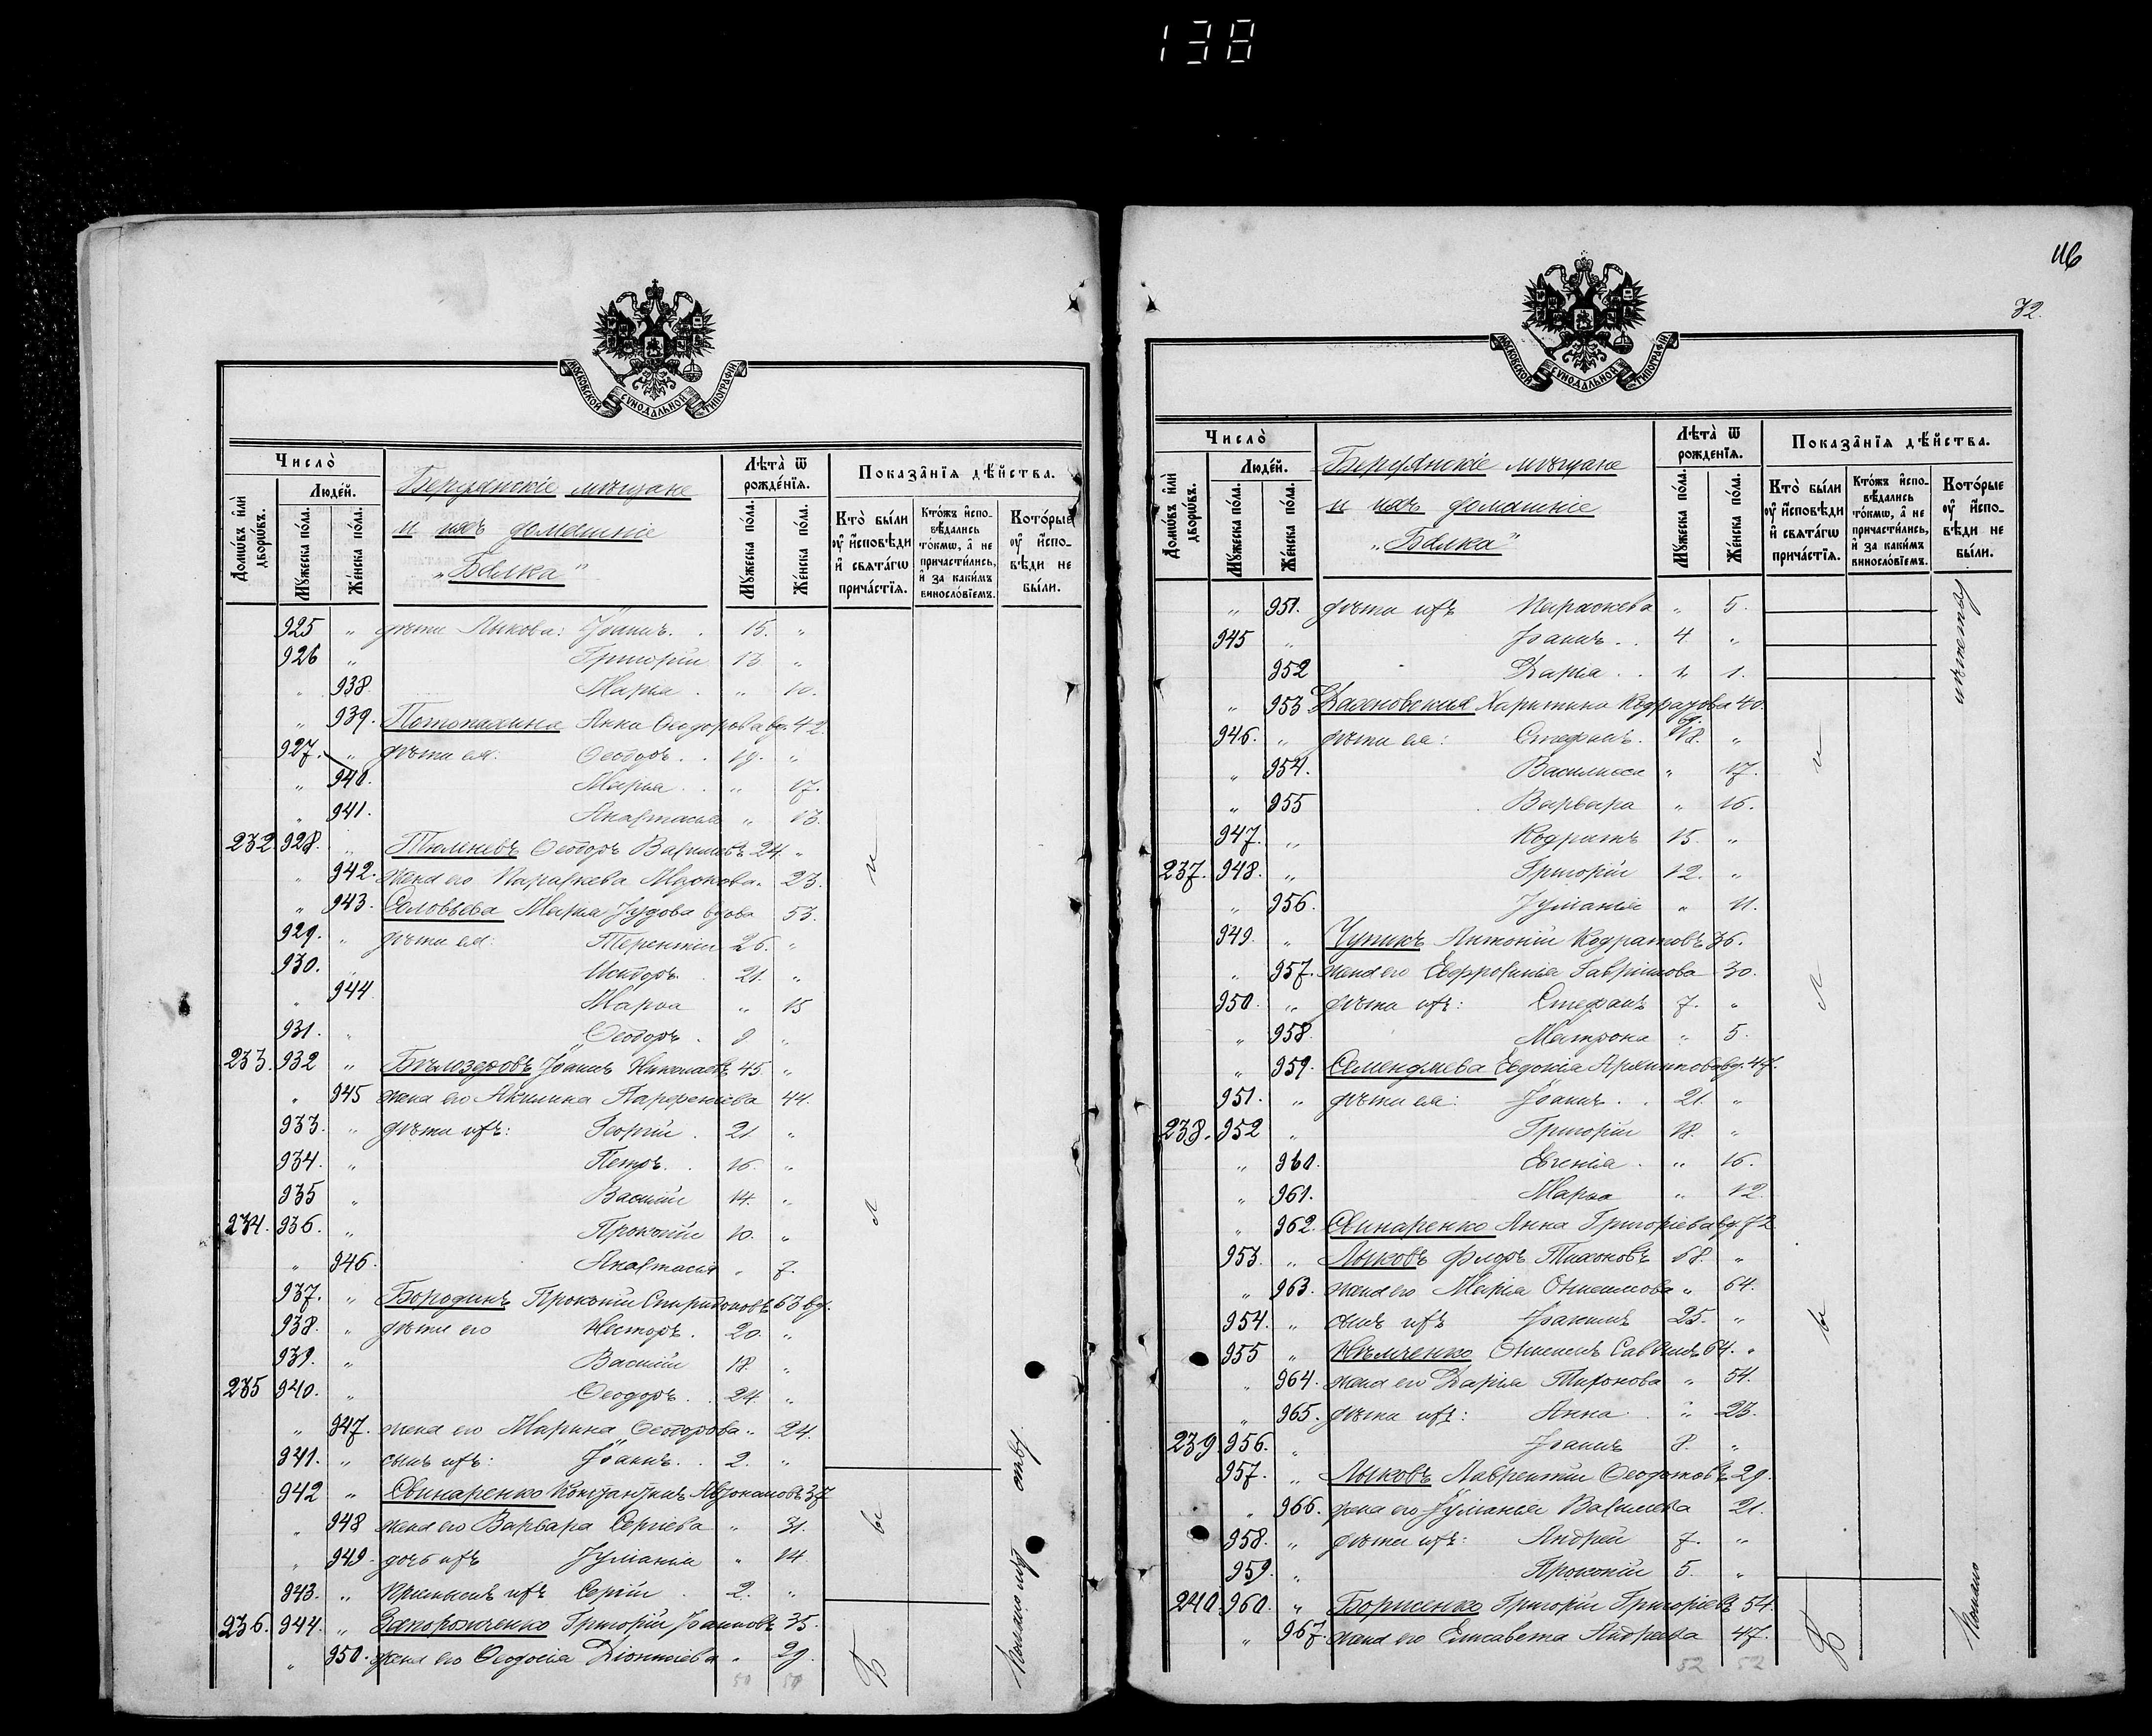 138
МОСКОВСКОЙ СУНОДАЛЬНОЙ ТИПОГРАФІИ
Число̀
Домѡ́въ и҆лѝ дворѡ́въ.
Люде́й.
Мꙋ́жеска по́ла.
Же́нска по́ла.
Бердянскіе мѣщане
и ихъ домашніе
„Балка"
Лѣта̀ ѿ рожде́нїя.
Мꙋ́жеска по́ла.
Же́нска по́ла.
Показа̑нїя дѣ́йства.
Кто̀ бы́ли ᲂу҆ и҆сповѣ́ди и҆ свѧта́гѡ прича́стїѧ.
Кто́жъ и҆спо-вѣ́дались то́кмѡ, а҆ не причасти́лись, и҆ за каки́мъ виносло́вїемъ.
Кото́рые ᲂу҆ и҆спо-вѣ́ди не бы́ли.
925 „ дѣти Лыкова: Іоаннъ. . 15. „
926 „ Григорій 13 „
„ 938. Марія . „ 10.
„ 939. Потопахина Анна Ѳеодорова вд. 42.
927. „ дѣти ея: Ѳеодоръ. . 19. „
„ 940. Марія . . „ 17.
„ 941. Анастасія „ 13.
232 928. „ Тюленевъ Ѳеодоръ Васильевъ 24. „
„ 942. жена его Параскева „ 23.
„ 943. Соловьева Марія Іудова вдова 53.
929. „ дѣти ея: Терентій 26. „
930. „ Исидоръ. . 21. „
„ 944 Марѳа „ 15
931. „ Ѳеодоръ . 9 „
233. 932 „ Бѣлозеровъ Іоаннъ Николаевъ 45. „
„ 945 жена его Акилина Парѳеніева 44.
933. „ дѣти ихъ: Георгій . 21 „
934. „ Петръ. . 16. „
935 „ Василій 14. „
234. 936. „ Прокопій 10. „
„ 946. Анастасія „ 7.
937. „ Бородинъ Прокопій Спиридоновъ 63 вд.
938. „ дѣти его Несторъ. . 20. „
939. „ Василій 18. „
235 940. „ Ѳеодоръ. . 24. „
„ 947. жена его Марина Ѳеодорова „ 24.
941. „ сынъ ихъ: Іоаннъ. . 2. „
942 „ Свинаренко Константинъ Автономовъ 37
„ 948 жена его Варвара Сергіева „ 31.
„ 949. дочь ихъ Іуліанія „ 14
943. „ ихъ Сергій . 2. „
236. 944. „ Запорожченко Григорій Іоанновъ 35.
„ 950. жена его Ѳеодосія Діонисіева „ 29.
50 50
и
л
ы
Б
116
72.
МОСКОВСКОЙ СУНОДАЛЬНОЙ ТИПОГРАФІИ
Число̀
Домѡ́въ и҆лѝ дворѡ́въ.
Люде́й.
Мꙋ́жеска по́ла.
Же́нска по́ла.
Бердянскіе мѣщане
и ихъ домашніе
„Балка"
Лѣта̀ ѿ рожде́нїя.
Мꙋ́жеска по́ла.
Же́нска по́ла.
Показа̑нїя дѣ́йства.
Кто̀ бы́ли ᲂу҆ и҆сповѣ́ди и҆ свѧта́гѡ прича́стїѧ.
Кто́жъ и҆спо-вѣ́дались то́кмѡ, а҆ не причасти́лись, и҆ за каки́мъ виносло́вїемъ.
Кото́рые ᲂу҆ и҆спо-вѣ́ди не бы́ли.
„ 951. дѣти ихъ Параскева „ 5.
945 „ Іоаннъ. . 4 „
952 Дарія . . „ 1.
„ 953 Харитина Кодратова 40.
946. „ дѣти ея: Стефанъ. 18. „
„ 954. Василисса „ 17.
„ 955 Варвара „ 16.
947. „ Кодратъ 15. „
237. 948. „ Григорій 12. „
„ 956. Іуліанія „ 11.
949. „ Чуприкъ Антоній Кодратовъ 36.
„ 957. жена его Евфросинія Гавріилова 30.
950. „ дѣти ихъ: Стефанъ 7. „
„ 958. Матрона „ 5.
„ 959. Семендяева Евдокія Архиппова вд. 47.
951. „ дѣти ея: Іоаннъ. . 21. „
238. 952 „ Григорій 18. „
„ 960. Евгенія . „ 16.
„ 961. Марѳа „ 12
„ 962. Свинаренко Анна Григоріева вд. 72
953. „ Лыковъ Тихоновъ 68. „
„ 963. жена его Марія Онисимова „ 64.
954. „ сынъ ихъ Іоакимъ 25. „
955 „ Нѣмченко Саввинъ 64. „
„ 964. жена его Дарія Тихонова „ 54.
„ 965. дѣти ихъ: Анна . „ 23.
239. 956. „ Іоаннъ 8. „
957. „ Лыковъ Лаврентій Ѳеодотовъ 29.
„ 966. жена его Іуліанія Васильева 21.
958. „ дѣти ихъ: Андрей 7. „
959. „ Прокопій 5. „
240. 960. „ Борисенко Григорій Григоріевъ 54.
„ 967. жена его Елисавета Андреева 47.
52 52
и
л
ы
Б